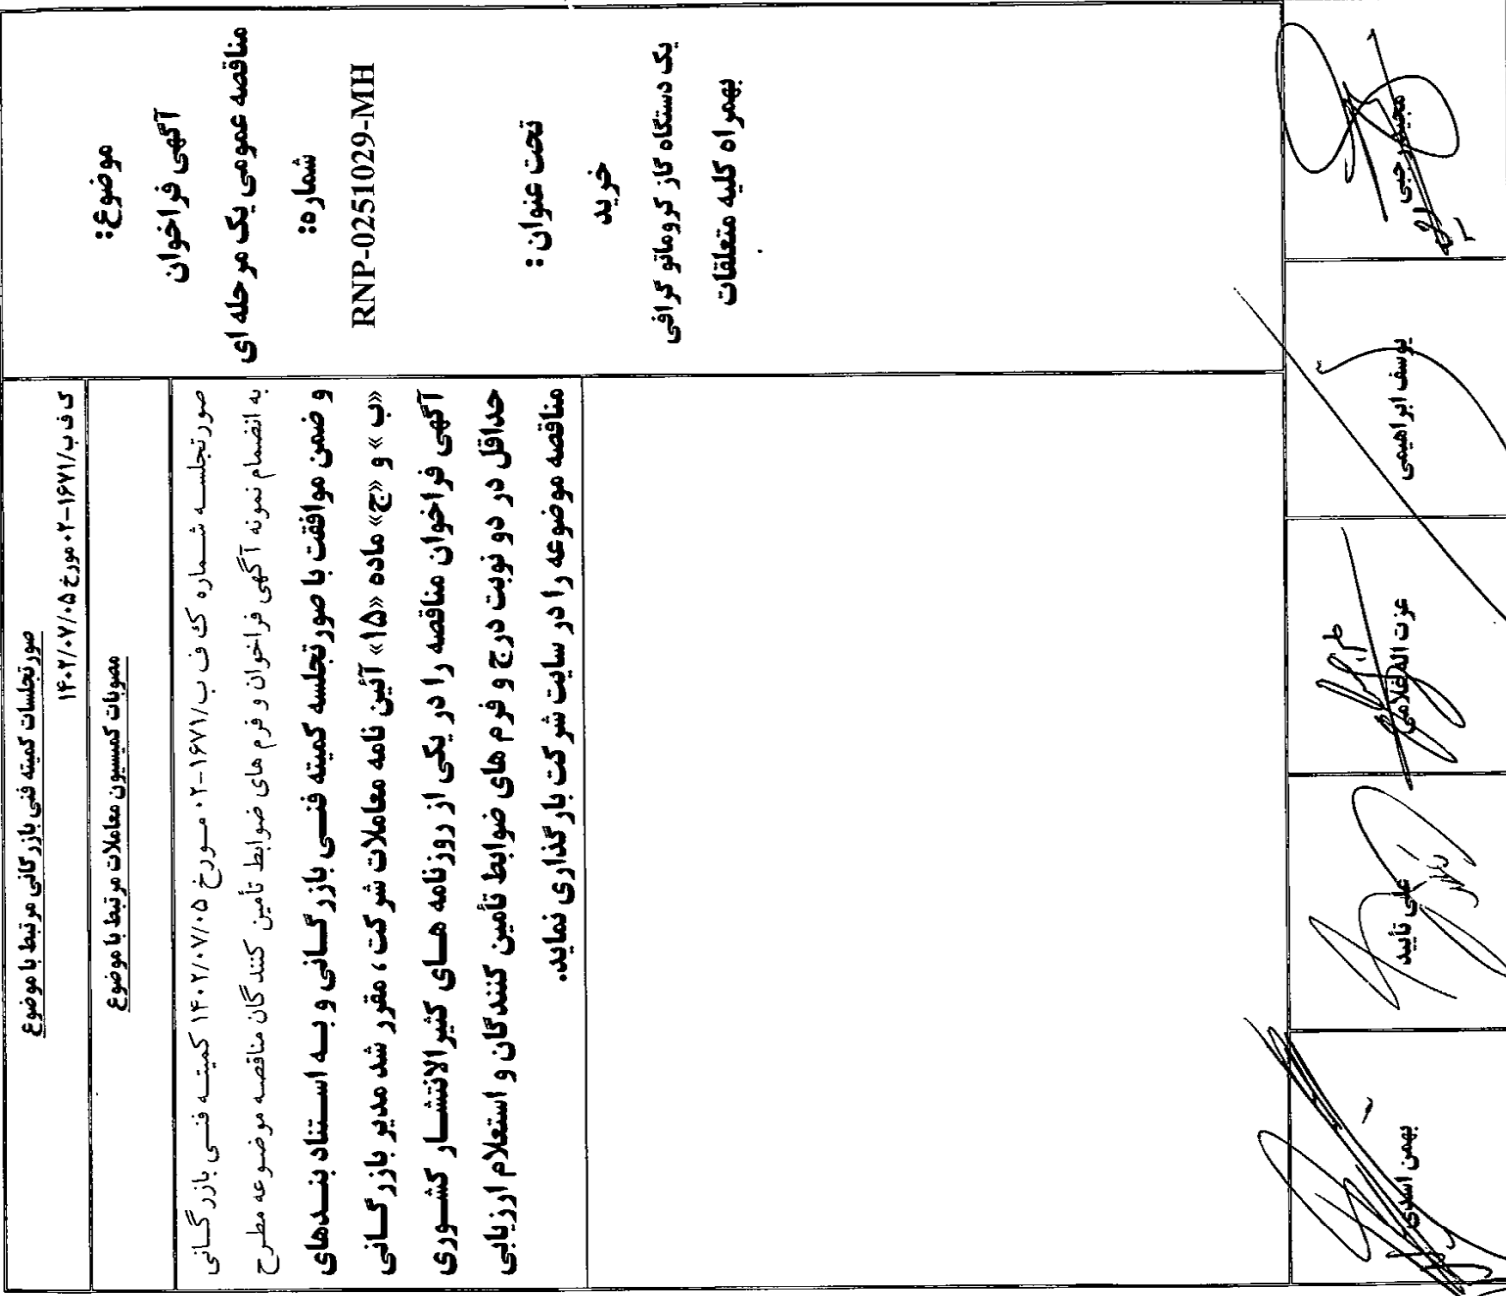 موضوع:
آگهی فراخوان
مناقصه عمومی یک مرحله ای
شماره:
RNP-0251029-MH
تحت عنوان:
خرید
یک دستگاه گاز کروماتو گرافی
بهمراه کلیه متعلقات
صورتجلسات کمیته فنی بازرگانی مرتبط با موضوع
ک ف ب/۱۶۷۱-۰۲ مورخ ۱۴۰۲/۰۷/۰۵
مصوبات کمیسیون معاملات مرتبط با موضوع
صورتجلسه شماره ک ف ب/۱۶۷۱-۰۲ مورخ ۱۴۰۲/۰۷/۰۵ کمیته فنی بازرگانی
به انضمام نمونه آگهی فراخوان و فرم های ضوابط تأمین کنندگان مناقصه موضوعه مطرح
و ضمن موافقت با صورتجلسه کمیته فنی بازرگانی و به استناد بندهای
«ب» و «ج» ماده «۱۵» آئین نامه معاملات شرکت، مقرر شد مدیر بازرگانی
آگهی فراخوان مناقصه را در یکی از روزنامه های کثیرالانتشار کشوری
حداقل در دو نوبت درج و فرم های ضوابط تأمین کنندگان و استعلام ارزیابی
مناقصه موضوعه را در سایت شرکت بارگذاری نماید.
یوسف ابراهیمی
عزت اله غلامی
علی تأیید
بهمن اسدی